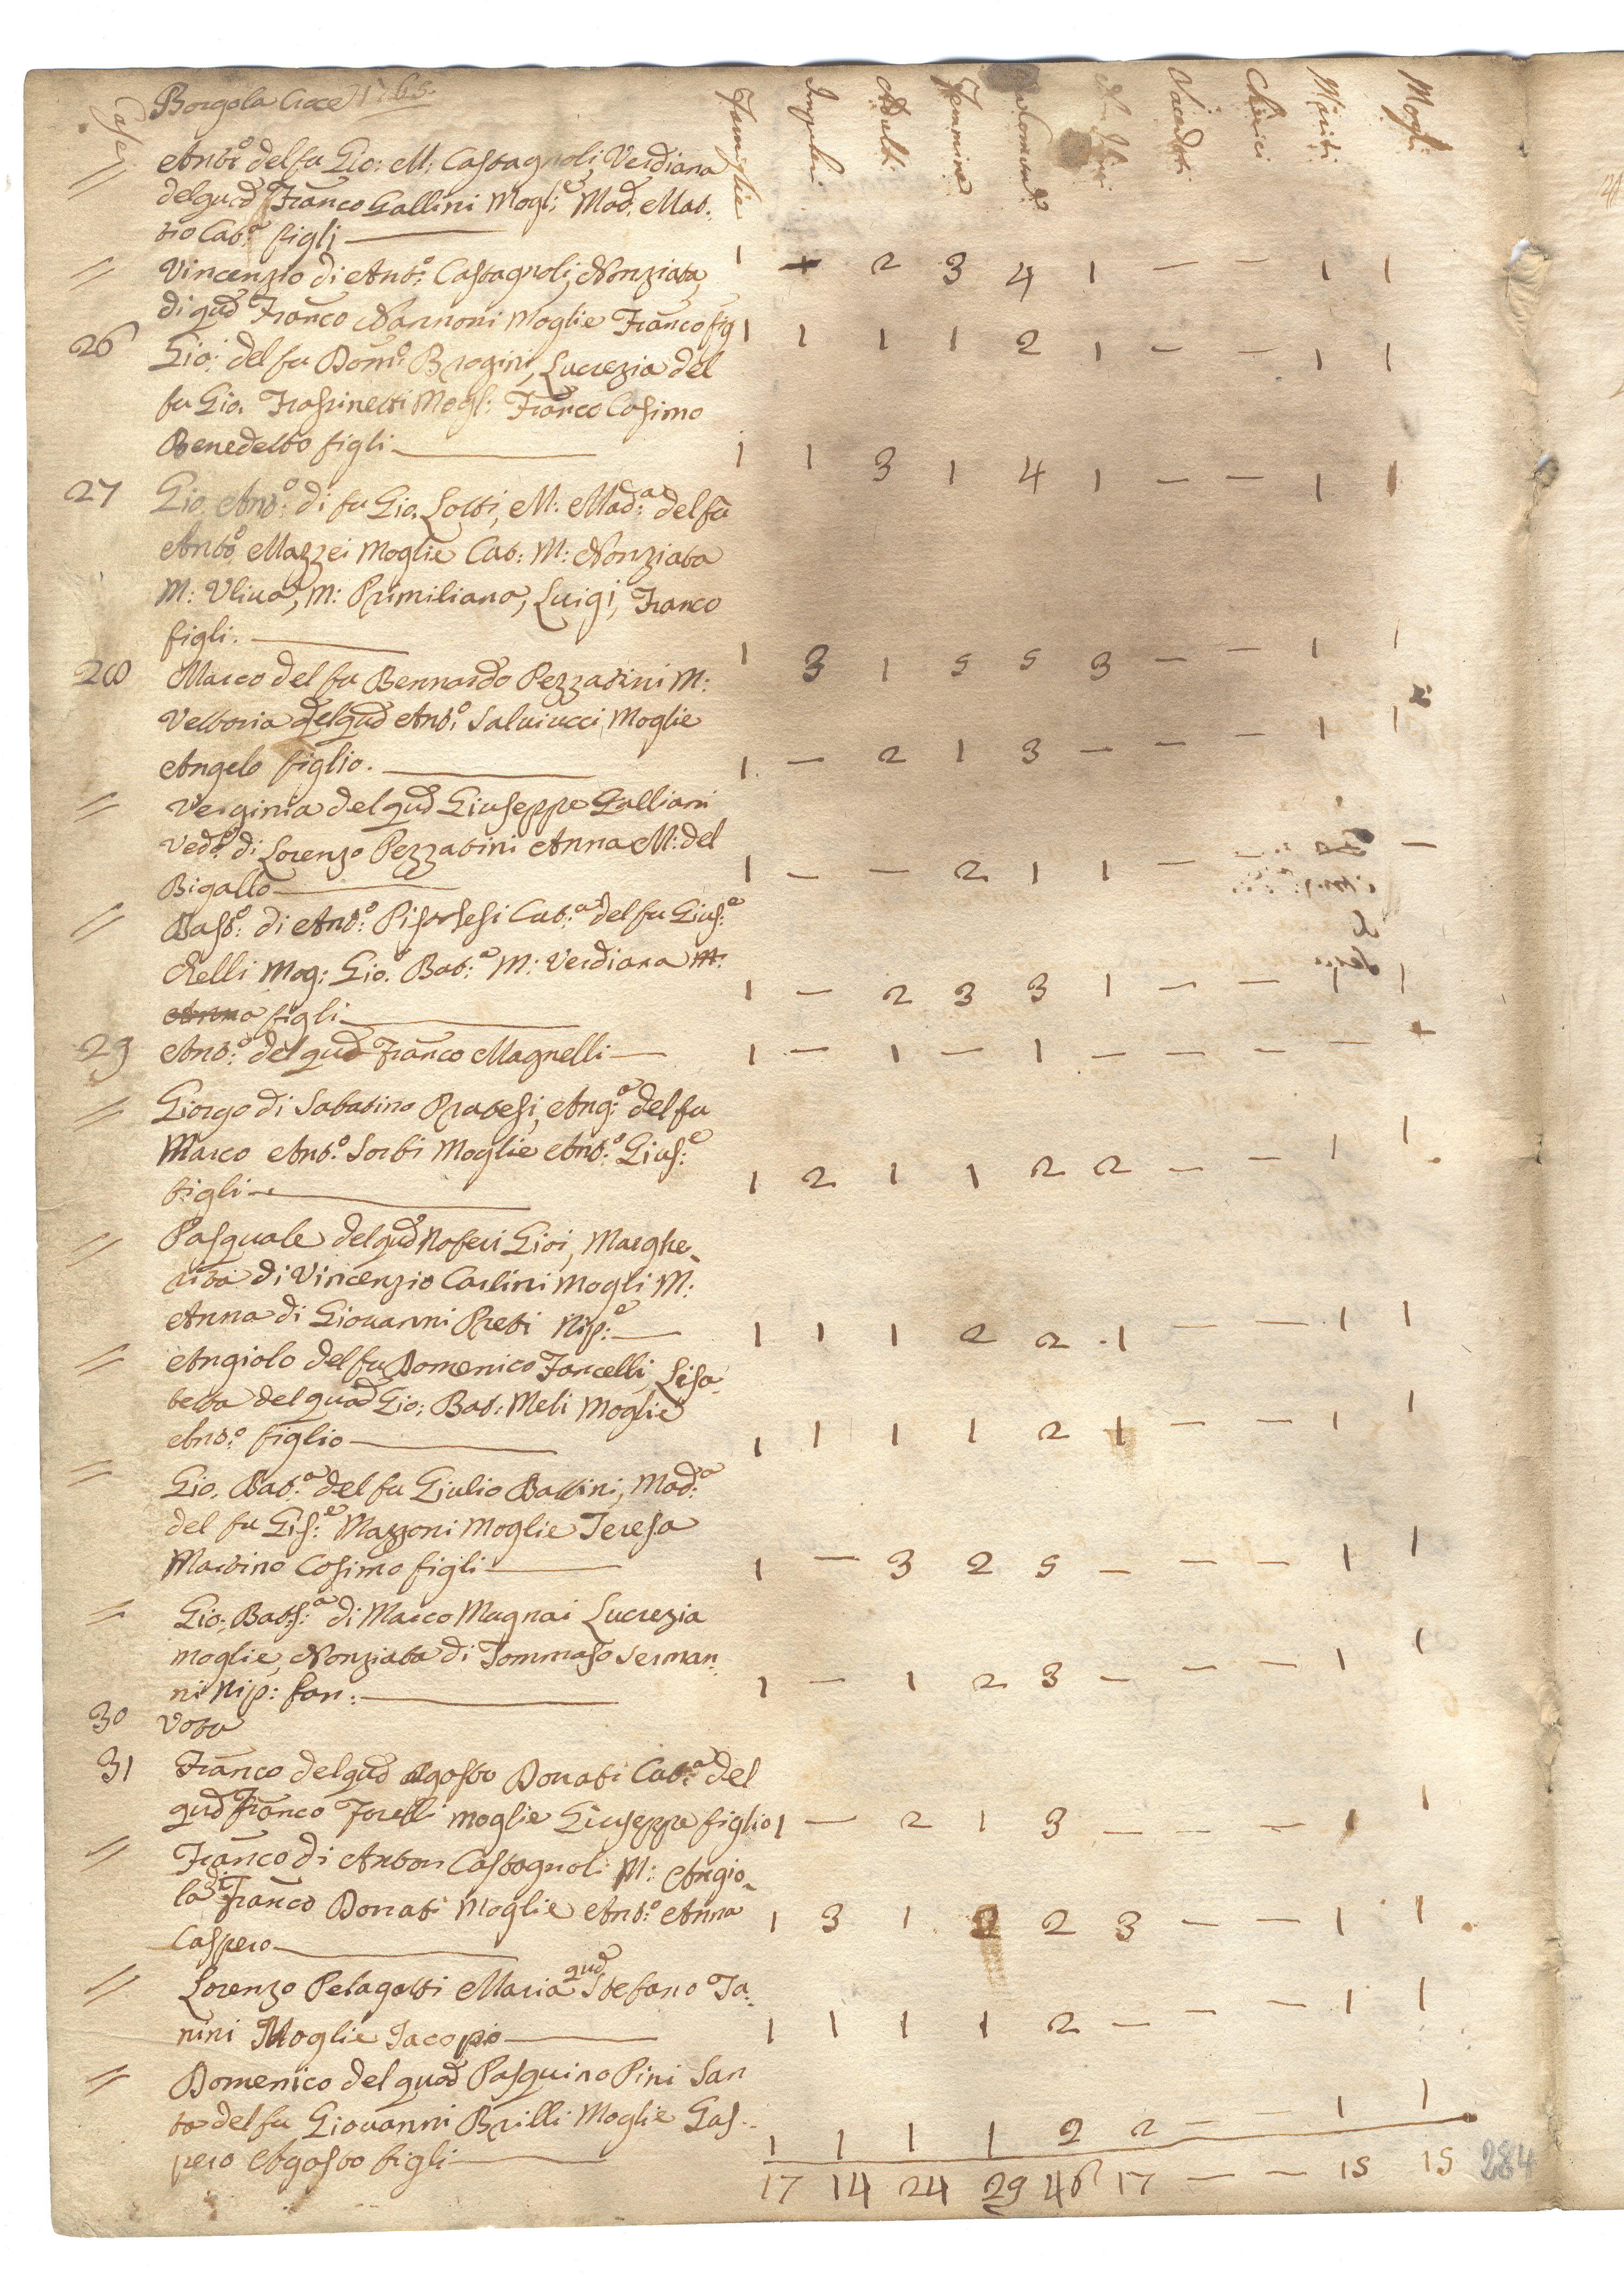 Borgo la Croce 1765.
Case
Famiglie Impuberi Adulti Femmine Comun: Sacerdoti Chierici Mariti Mogli
// Anto: del fu Gio: M: Castagnoli, Verdiana
del qud Franco Gallini Mogl:e Mad. Mat:
tio Cat:a figli
1 2 3 4 1 — — 1 1
// Vincenzio di Ant:o Castagnoli, Nonziata
di qud Franco Nannoni Moglie Franco fig
1 1 1 1 2 1 — — 1 1
26 Gio: del fu Dom:o Brogini, Lucrezia del
fu Gio. Frassinetti Mogl: Franco Cosimo
Benedetto figli
1 1 3 1 4 1 — — 1 1
27 Gio. Ant:o di fu Gio. Lotti, M: Mad:a del fu
Anto Mazzei Moglie Cat: M: Nonziata
M: Uliva, M: Primiliana, Luigi, Franco
figli.
1 3 1 5 5 3 — — 1 1
28 Marco del fu Bernardo Pezzatini M:
Vettoria del qud Ant:o Salviucci Moglie
Angelo figlio.
1 — 2 1 3 — — — 1 1
// Verginia del qud Giuseppe Galliani
Ved:a di Lorenzo Pezzatini Anna M: del
Bigallo
1 — — 2 1 1 — —
// Bast:o di Ant:o Pistolesi Cat:a del fu Gius:e
Relli Mog: Gio. Bat:a M: Verdiana M:
Anna figli
1 — 2 3 3 1 — — 1 1
29 Ant:o del qud Franco Magnelli
1 — 1 — 1 — — — —
// Giorgo di Sabatino Pratesi, Ang:a del fu
Marco Ant:o Sorbi Moglie Ant:o Gius:e
figli
1 2 1 1 2 2 — — 1 1
// Pasquale del qud Noferi Gioi, Marghe
rita di Vincenzio Carlini Mogli M:
Anna di Giovanni Preti Nip:e
1 1 1 2 2 1 — — 1 1
// Angiolo del fu Domenico Forcelli, Lisa
betta del quod Gio: Bat: Meli Moglie
Ant:o figlio
1 1 1 1 2 1 — — 1 1
// Gio. Bat:a del fu Giulio Battini, Mad:a
del fu Gis:e Mazzoni Moglie Teresa
Martino Cosimo figli
1 — 3 2 5 — — — 1 1
// Gio: Batt:a di Marco Mugnai Lucrezia
moglie, Nonziata di Tommaso Serman
ni Nip: fan:
1 — 1 2 3 — — — 1 1
30 Vota
31 Franco del qud Agosto Donati Cat:a del
qud Franco Forelli moglie Giuseppe figlio
1 — 2 1 3 — — — 1 1
// Franco di Anton Castagnoli M: Angio
la di Franco Donati Moglie Ant:o Anna
Caspero
1 3 1 2 2 3 — — 1 1
// Lorenzo Pelagatti Maria qud Stefano Ta:
nini Moglie Jacopo
1 1 1 1 2 — — — 1 1
// Domenico del quod Pasquino Pini San
ta del fu Giovanni Brilli Moglie Gas
pero Agosto figli
1 1 1 1 2 2 — — 1 1
17 14 24 29 46 17 — — 15 15
284